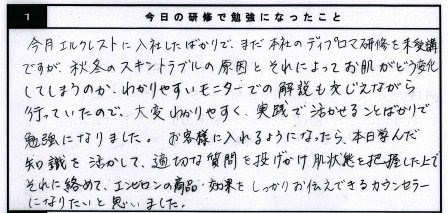 1 今日の研修で勉強になったこと
今月エルクレストに入社したばかりで、まだ本社のディプロマ研修を未受講
ですが、秋冬のスキントラブルの原因とそれによってお肌がどう変化
してしまうのか、わかりやすいモニターでの解説も交じえながら
行っていたので、大変わかりやすく、実践で活かせることばかりで
勉強になりました。 お客様に入れるようになったら、本日学んだ
知識を活かして、適切な質問を投げかけ肌状態を把握した上で
それに絡めて、エンビロンの商品・効果をしっかりお伝えできるカウンセラー
になりたいと思いました。